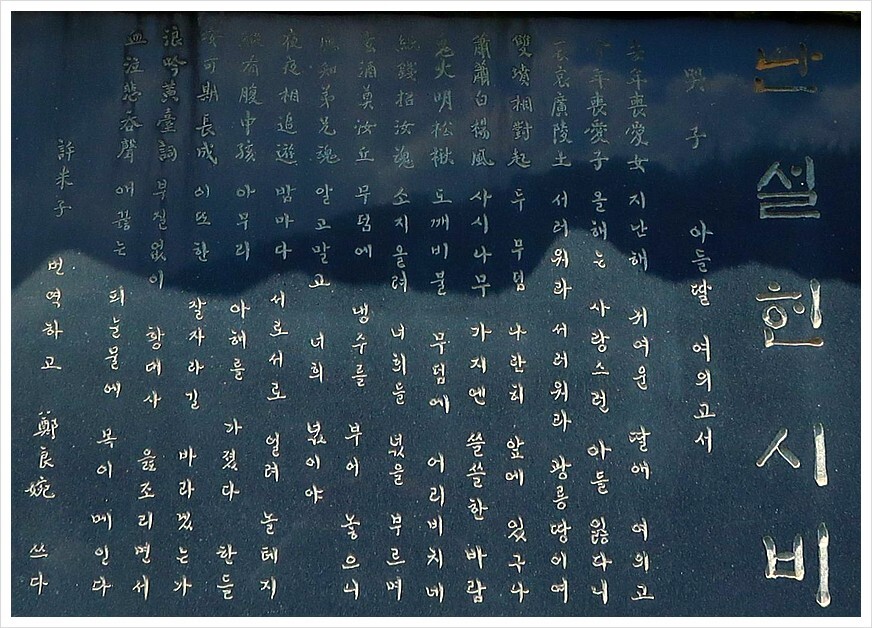 난설헌시비
哭子 아들딸 여의고서
去年喪愛女 지난해 귀여운 딸애 여의고
今年喪愛子 올해는 사랑스런 아들 잃다니
哀哀廣陵土 서러워라 서러워라 광릉땅이여
雙墳相對起 두 무덤 나란히 앞에 있구나
蕭蕭白楊風 사시나무 가지엔 쓸쓸한 바람
鬼火明松楸 도깨비불 무덤에 어리비치네
紙錢招汝魂 소지올려 너희들 넋을 부르며
玄酒奠汝丘 무덤에 냉수를 부어 놓으니
應知弟兄魂 알고말고 너희 넋이야
夜夜相追遊 밤마다 서로서로 얼려 놀테지
縱有腹中孩 아무리 아해를 가졌다 한들
安可期長成 이또한 잘자라길 바라겠는가
浪吟黃臺詞 부질없이 황대사 읊조리면서
血泣悲呑聲 애끓는 피눈물에 목이 메인다
許米子 번역하고 鄭良婉 쓰다